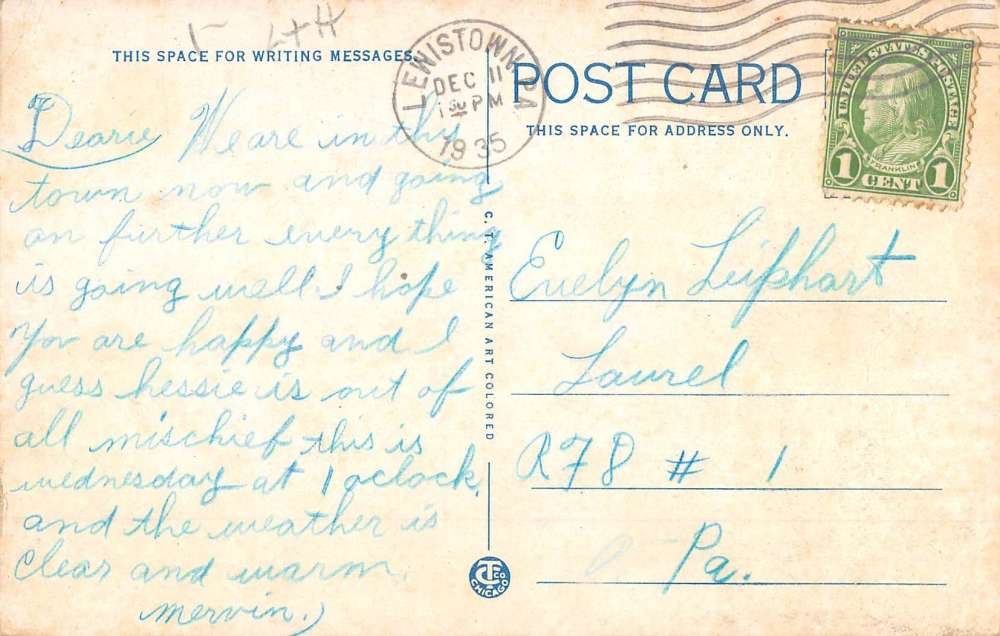 1- L+H
THIS SPACE FOR WRITING MESSAGES.
LEWISTOWN, PA
DEC 11
1 30 PM
1935
POST CARD
THIS SPACE FOR ADDRESS ONLY.
UNITED STATES POSTAGE
FRANKLIN
1 CENT 1
Dearie We are in thiy
town now and going
on further every thing
is going well I hope
you are happy and I
guess hessie is out of
all mischief this is
wednesday at 1 oclock.
and the weather is
clear and warm.
mervin.)
C. T. AMERICAN ART COLORED
CT CO
CHICAGO
Evelyn Leiphart
Laurel
R F D # 1
Pa.